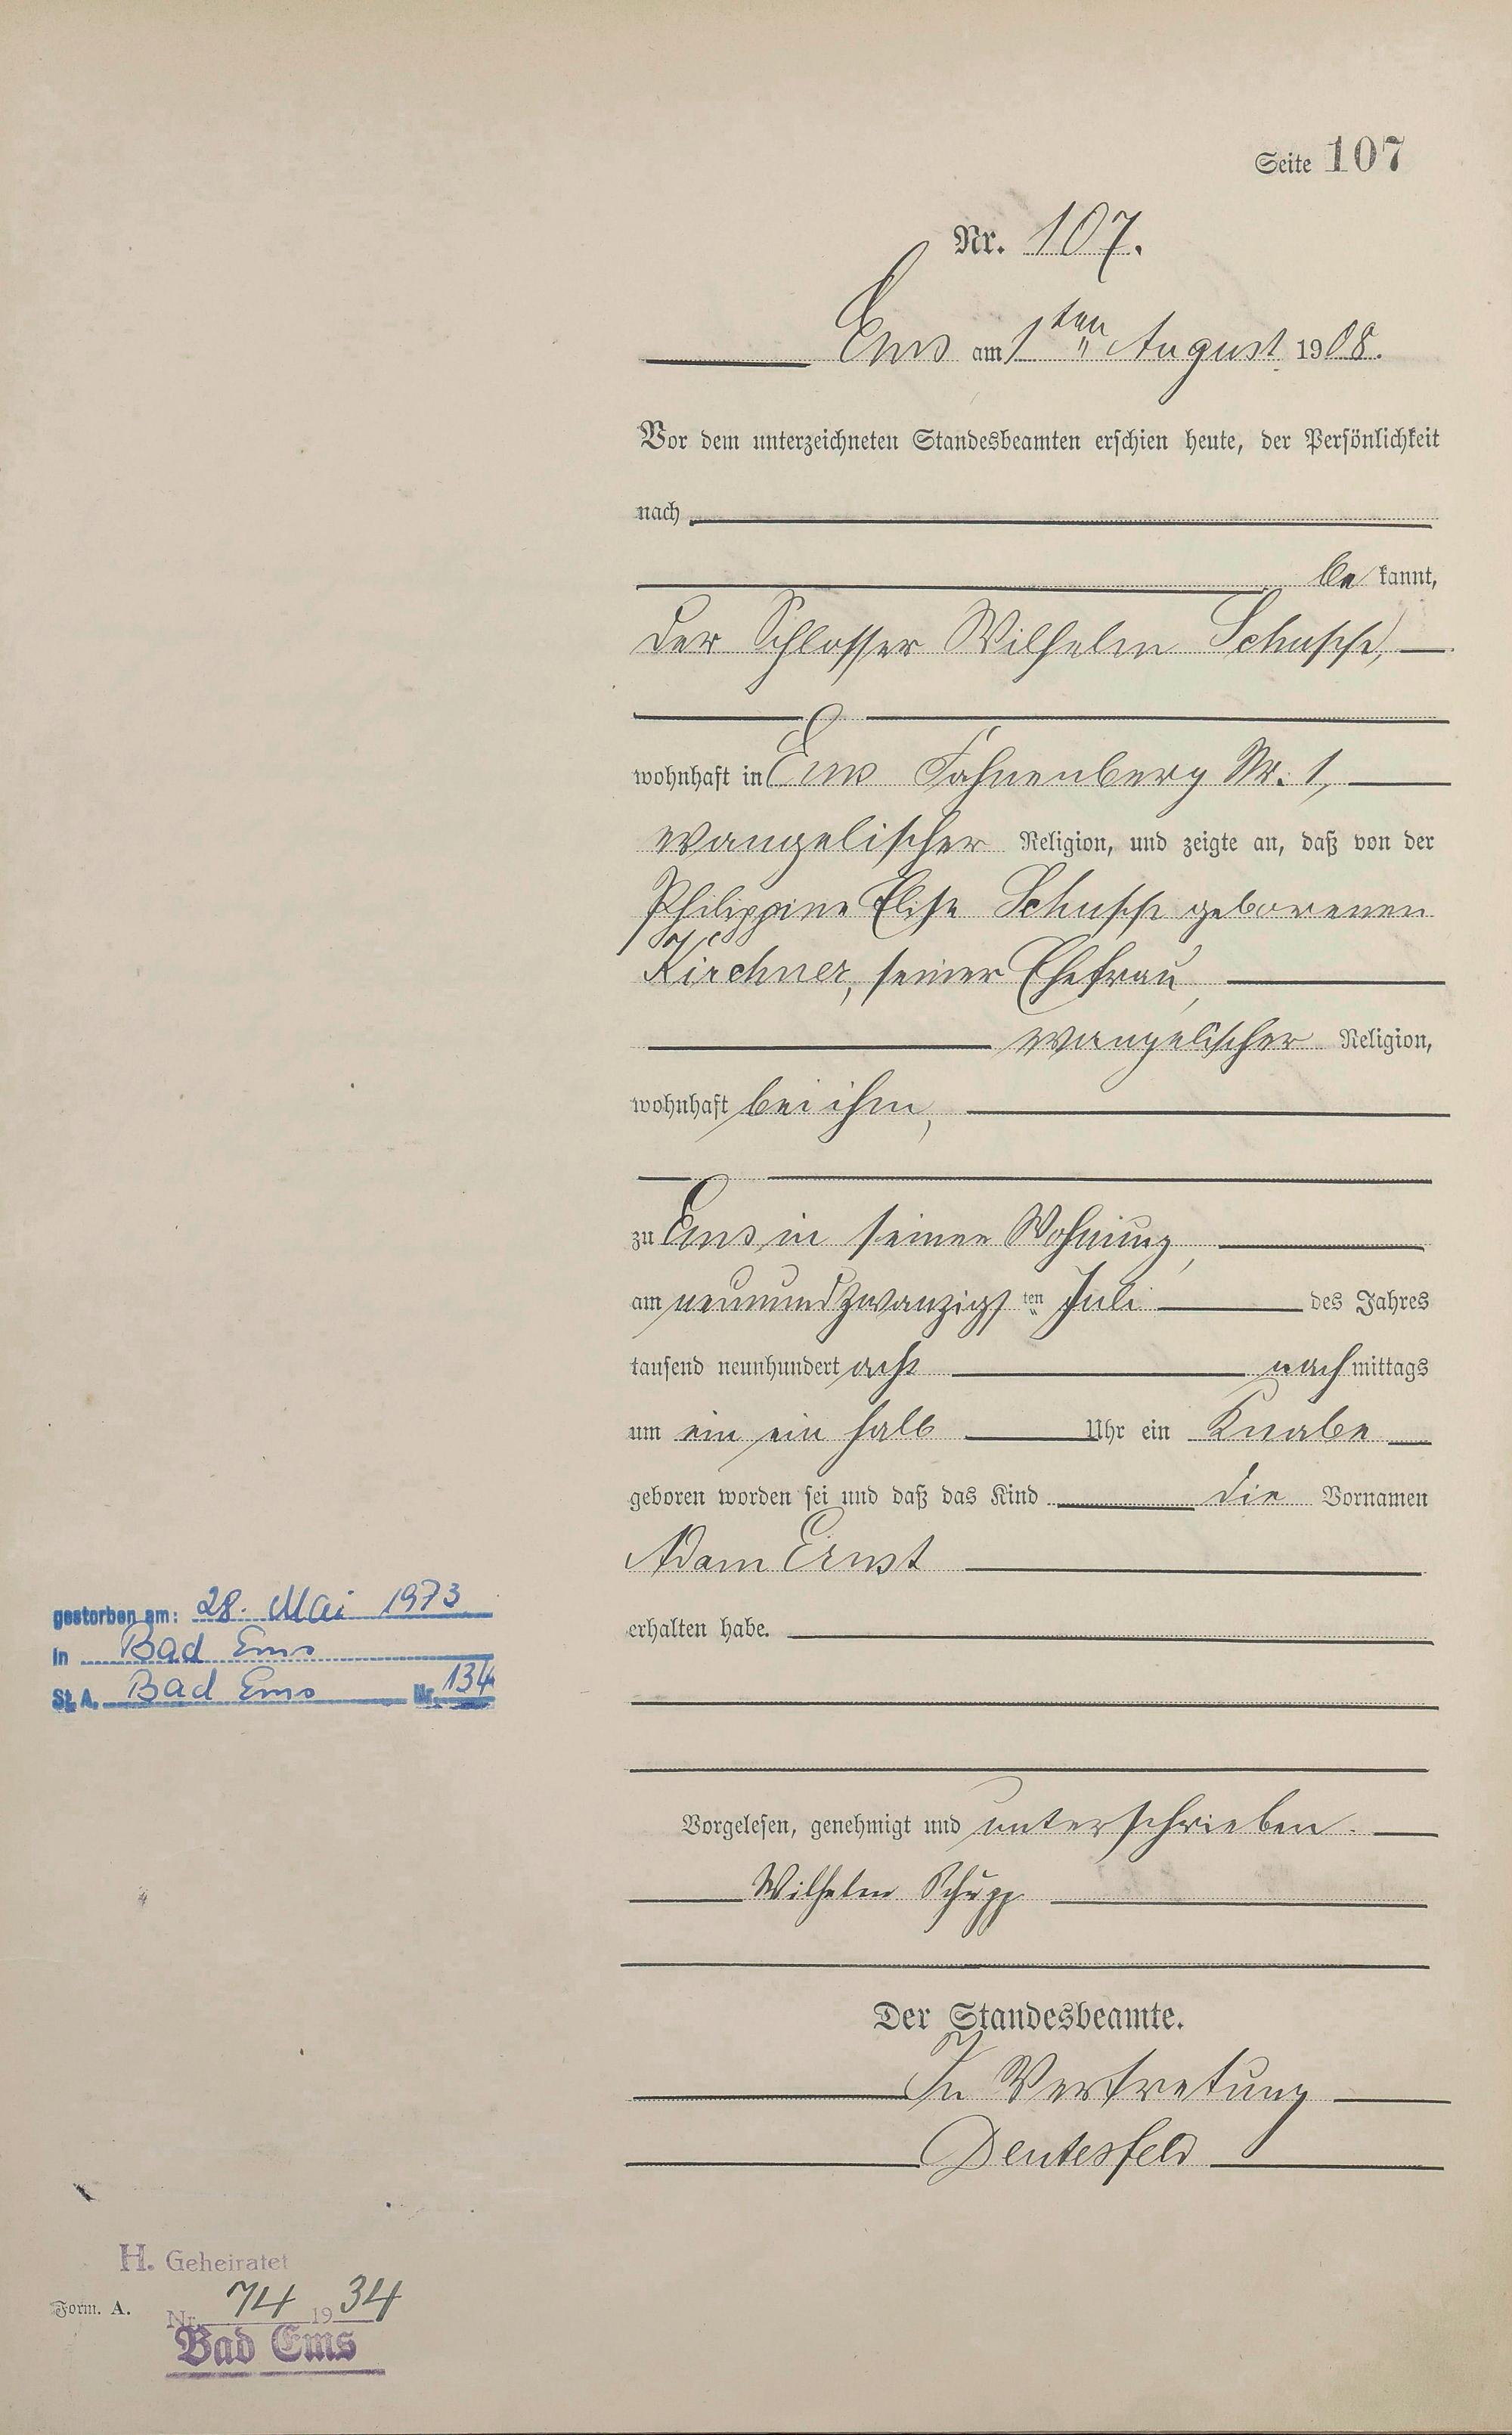 Seite 107
Nr. 107.
Ems am 1ten August 1908.
Vor dem unterzeichneten Standesbeamten erschien heute, der Persönlichkeit
nach
be kannt,
der Schlosser Wilhelm Schupp,
wohnhaft in Ems Fahnenberg Nr. 1,
evangelischer Religion, und zeigte an, daß von der
Philippine Elise Schupp geborenen
Kirchner, seiner Ehefrau,
evangelischer Religion,
wohnhaft bei ihm,
zu Ems in seiner Wohnung,
am neunundzwanzigsten Juli des Jahres
tausend neunhundert acht nachmittags
um ein ein halb Uhr ein Knabe
geboren worden sei und daß das Kind die Vornamen
Adam Ernst
erhalten habe.
Vorgelesen, genehmigt und unterschrieben.
Wilhelm Schupp
Der Standesbeamte.
In Vertretung
Deutesfeld
gestorben am: 28. Mai 1973
in Bad Ems
St. A. Bad Ems Nr. 134
H. Geheiratet
Form. A. Nr. 74 1934
Bad Ems